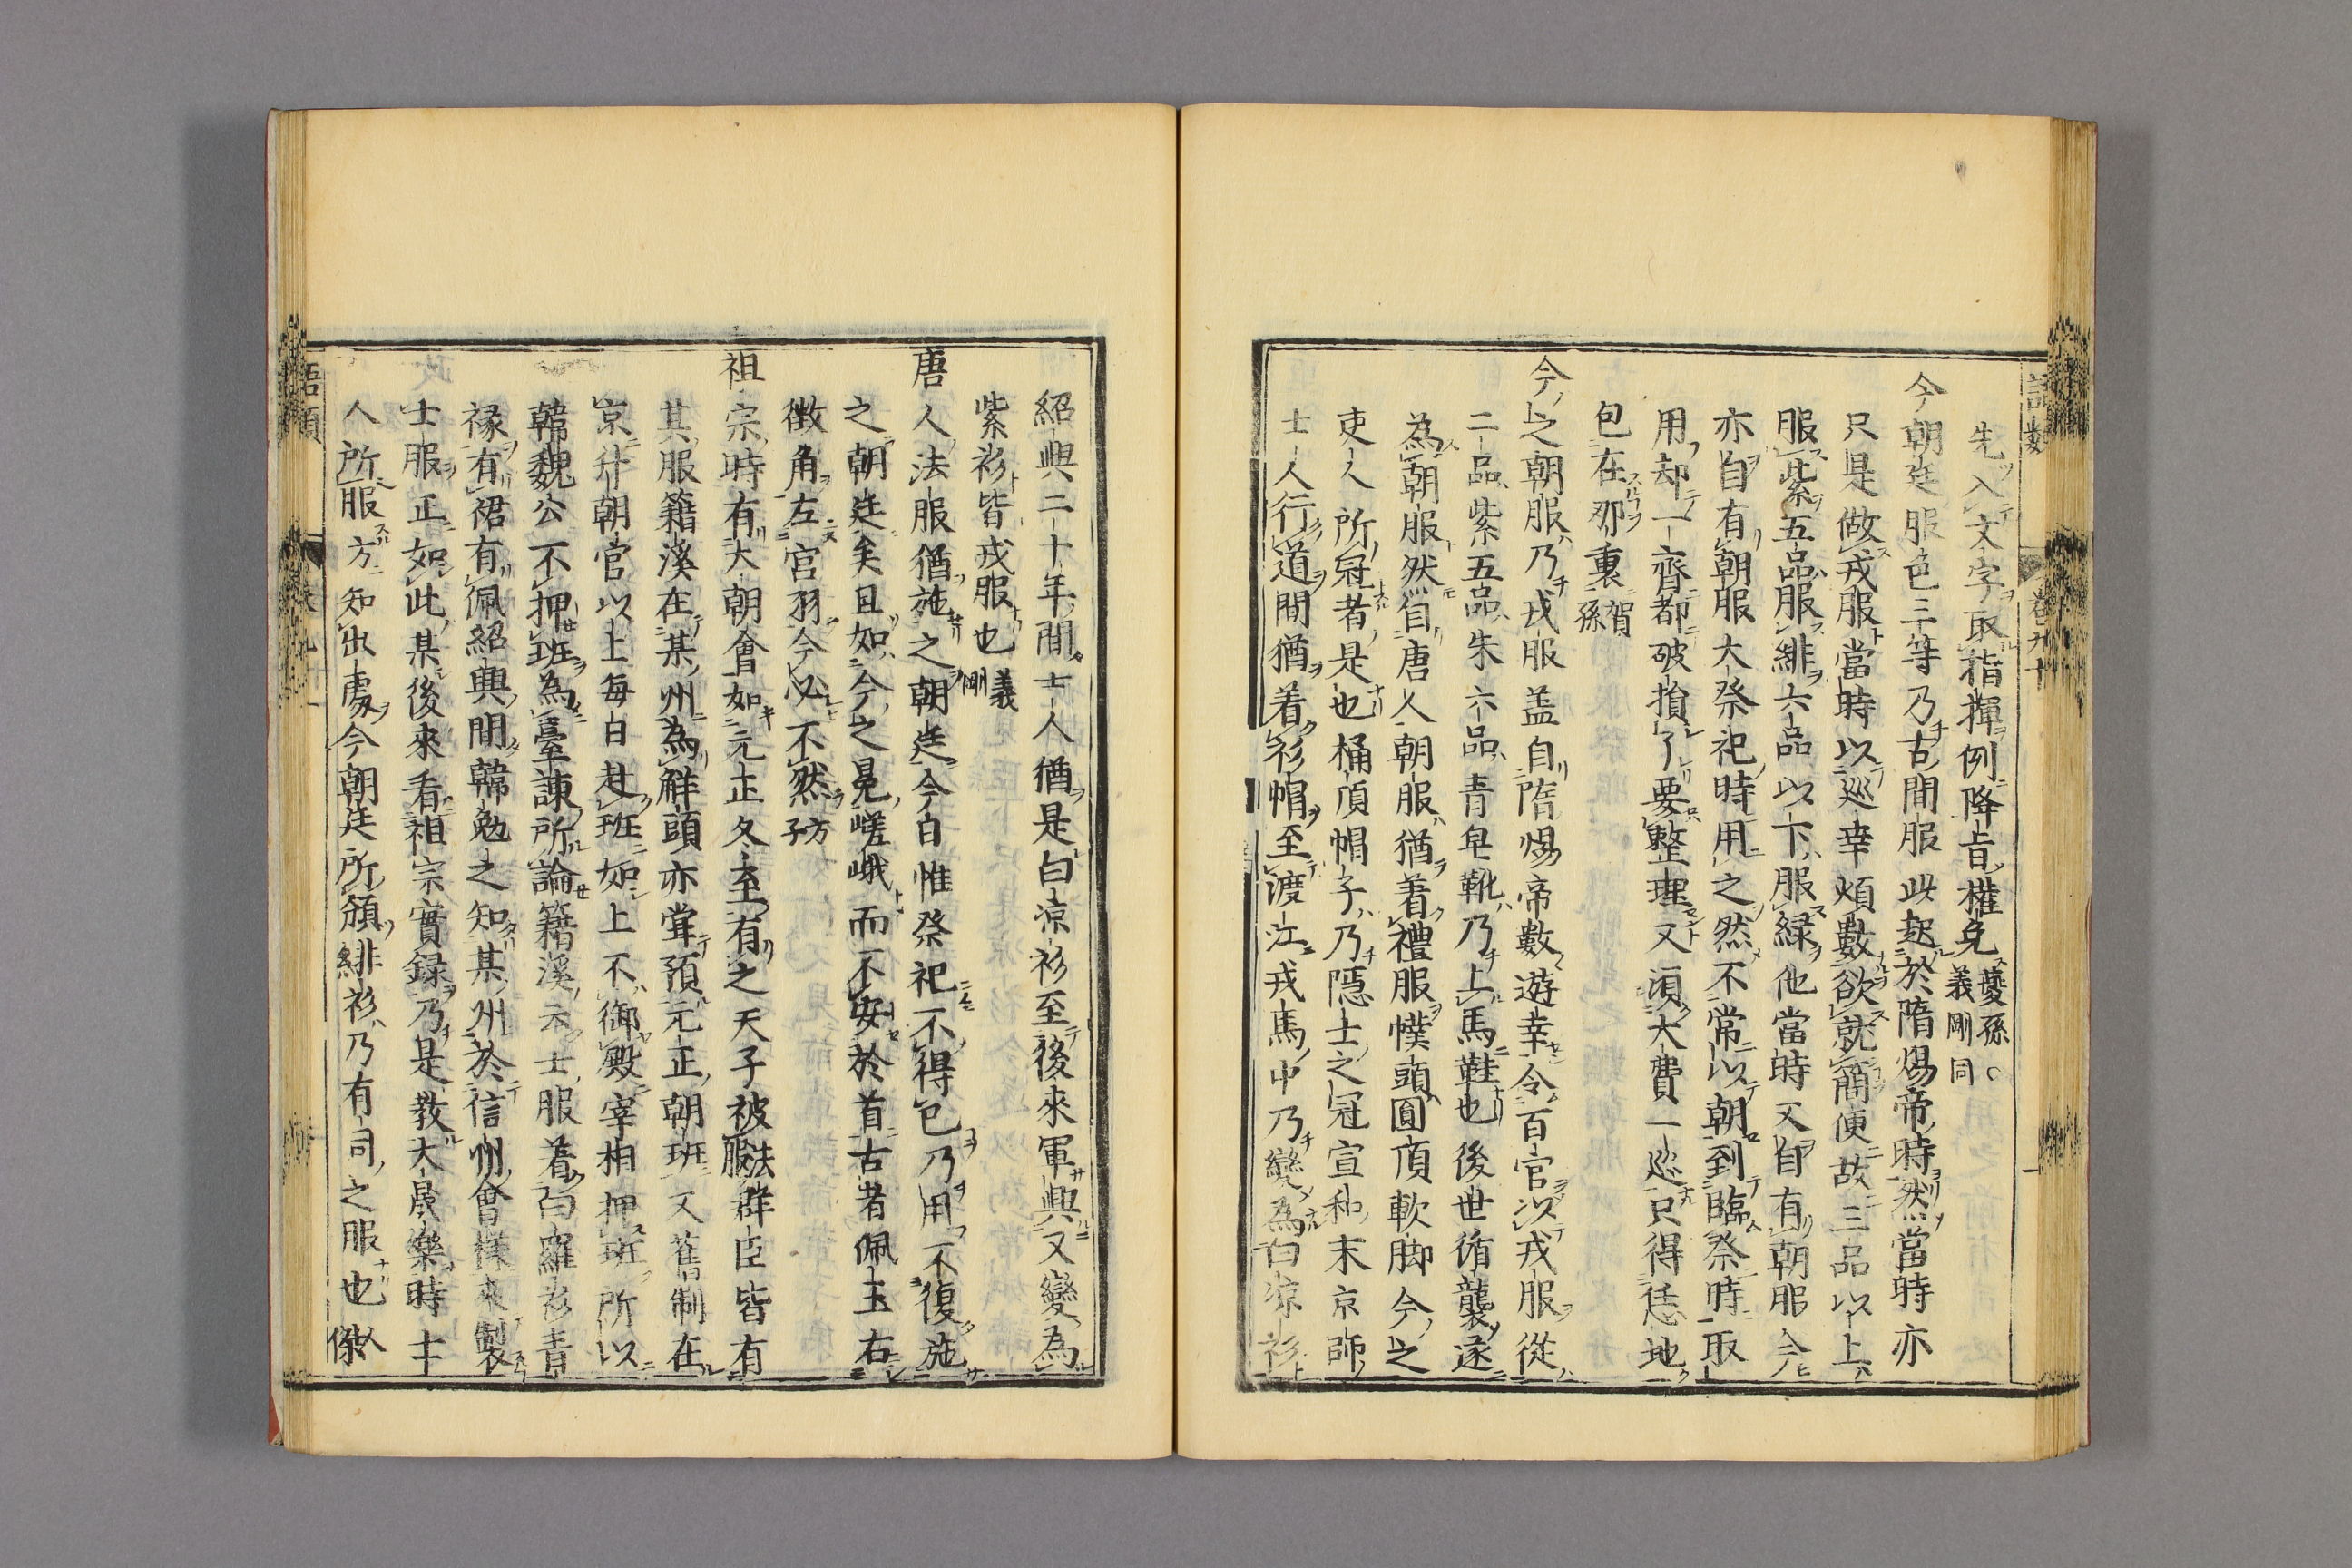 語類 卷九十一
先入文字取指揮例降旨權免夔孫。義剛同
今朝廷服色三等乃古間服此起於隋煬帝時然當時亦
只是做戎服當時以巡幸煩數欲就簡便故三品以上
服紫五品服緋六品以下服緑他當時又自有朝服今
亦自有朝服大祭祀時用之然不常以朝到臨祭時取
用却一齊都破損了要整理又須大費一巡只得恁地
包在那裏賀孫
今之朝服乃戎服盖自隋煬帝數遊幸令百官以戎服從
二品紫五品朱六品青皂靴乃上馬鞋也後世循襲遂
為朝服然自唐人朝服猶着禮服幞頭圓頂軟脚今之
吏人所冠者是也桶頂帽子乃隱士之冠宣和末京師
士人行道間猶着衫帽至渡江戎馬中乃變為白凉衫
紹興二十年間士人猶是白凉衫至後來軍興又變為
紫衫皆戎服也義剛
唐人法服猶施之朝廷今日惟祭祀不得已乃用不復施
之朝廷矣且如今之冕嵯峨而不安於首古者佩玉右
徴角左宮羽今必不然子方
祖宗時有大朝會如元正冬至有之天子被法服群臣皆有
其服籍溪在某州為解頭亦甞預元正朝班又舊制在
京升朝官以上每日赴班如上不御殿宰相押班所以
韓魏公不押班為臺諫所論籍溪云士服着白羅衫青
禄有裙有佩紹興間韓勉之知某州於信州會樣來製
士服正如此某後來看祖宗實録乃是教大晟樂時士
人所服方知出處今朝廷所頒緋衫乃有司之服也人傑
語類 卷九十一